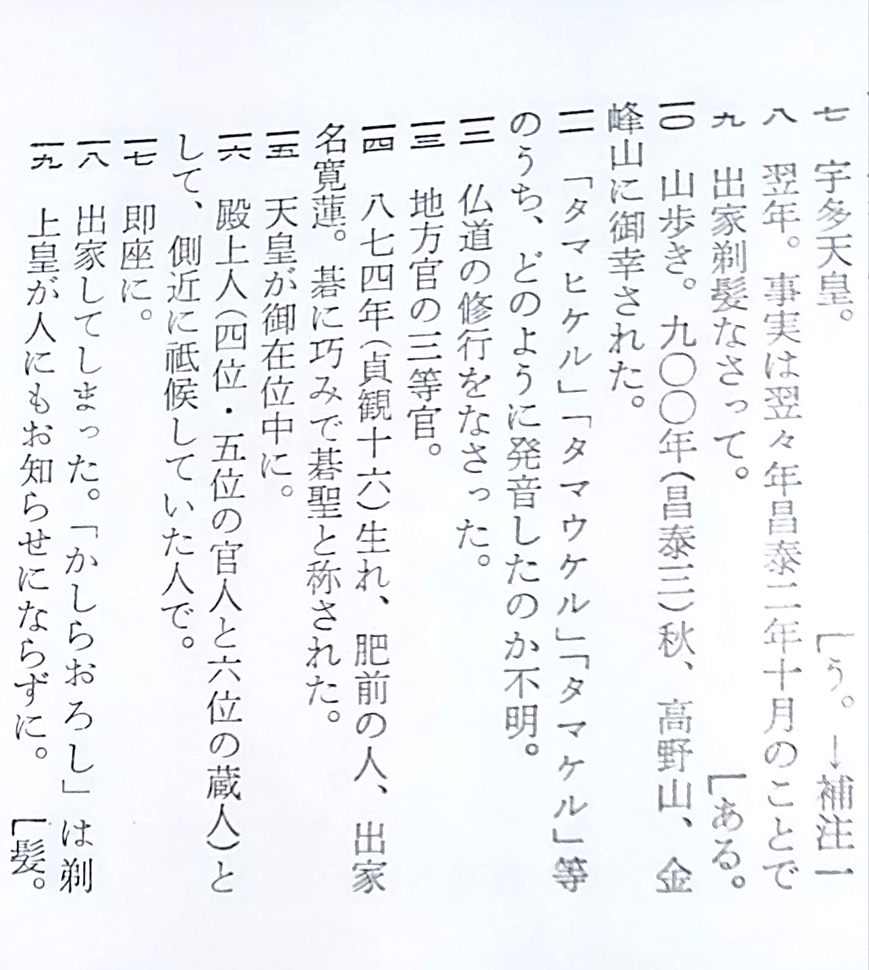 七　宇多天皇。　［う。→補注一
八　翌年。事実は翌々年昌泰二年十月のことで
九　出家剃髪なさって。　［ある。
一〇　山歩き。九〇〇年（昌泰三）秋、高野山、金
峰山に御幸された。
一一　「タマヒケル」「タマウケル」「タマケル」等
のうち、どのように発音したのか不明。
一二　仏道の修行をなさった。
一三　地方官の三等官。
一四　八七四年（貞観十六）生れ、肥前の人、出家
名寛蓮。碁に巧みで碁聖と称された。
一五　天皇が御在位中に。
一六　殿上人（四位・五位の官人と六位の蔵人）と
して、側近に祗候していた人で。
一七　即座に。
一八　出家してしまった。「かしらおろし」は剃
一九　上皇が人にもお知らせにならずに。　［髪。